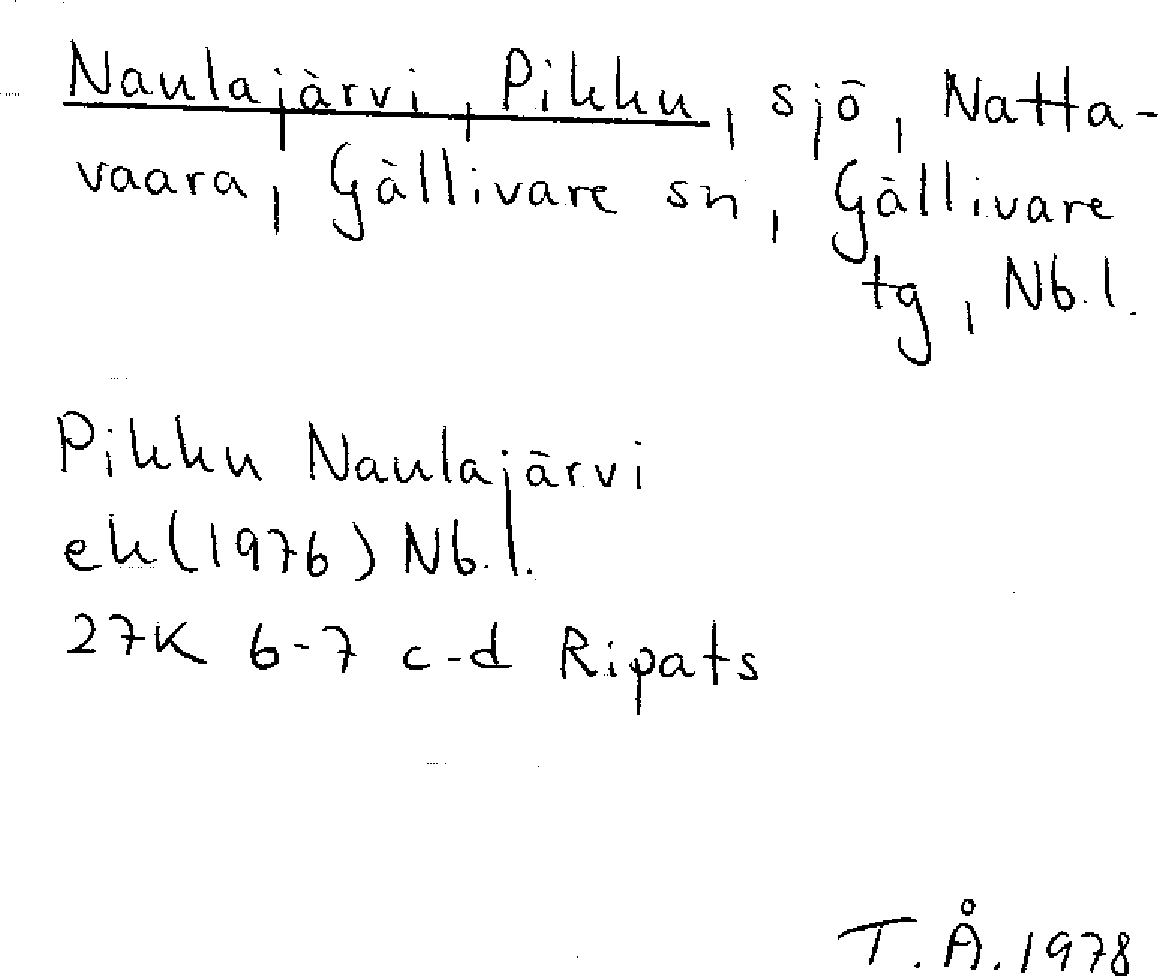 Naulajärvi, Pikku, sjö, Natta-
vaara, Gällivare sn, Gällivare
tg, Nb.l.
Pikku Naulajärvi
ek(1976) Nb.l.
27K 6-7 c-d Ripats
T.Å.1978